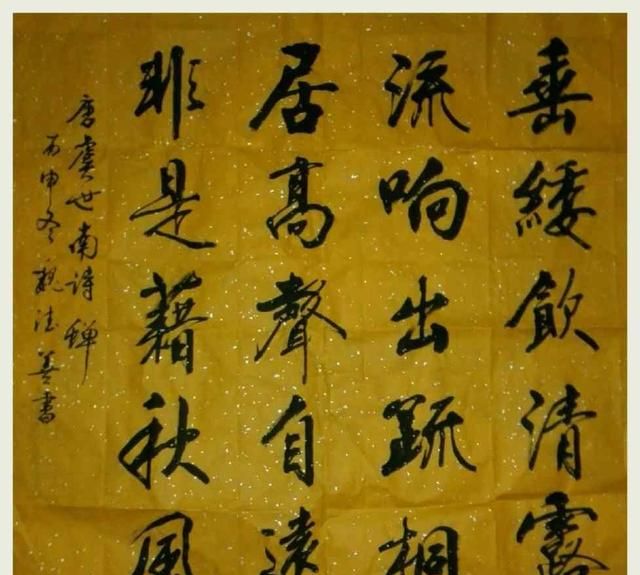 垂緌飲清露
流响出疏桐
居高聲自遠
非是藉秋風
唐虞世南詩蟬
丙申冬魏法善書